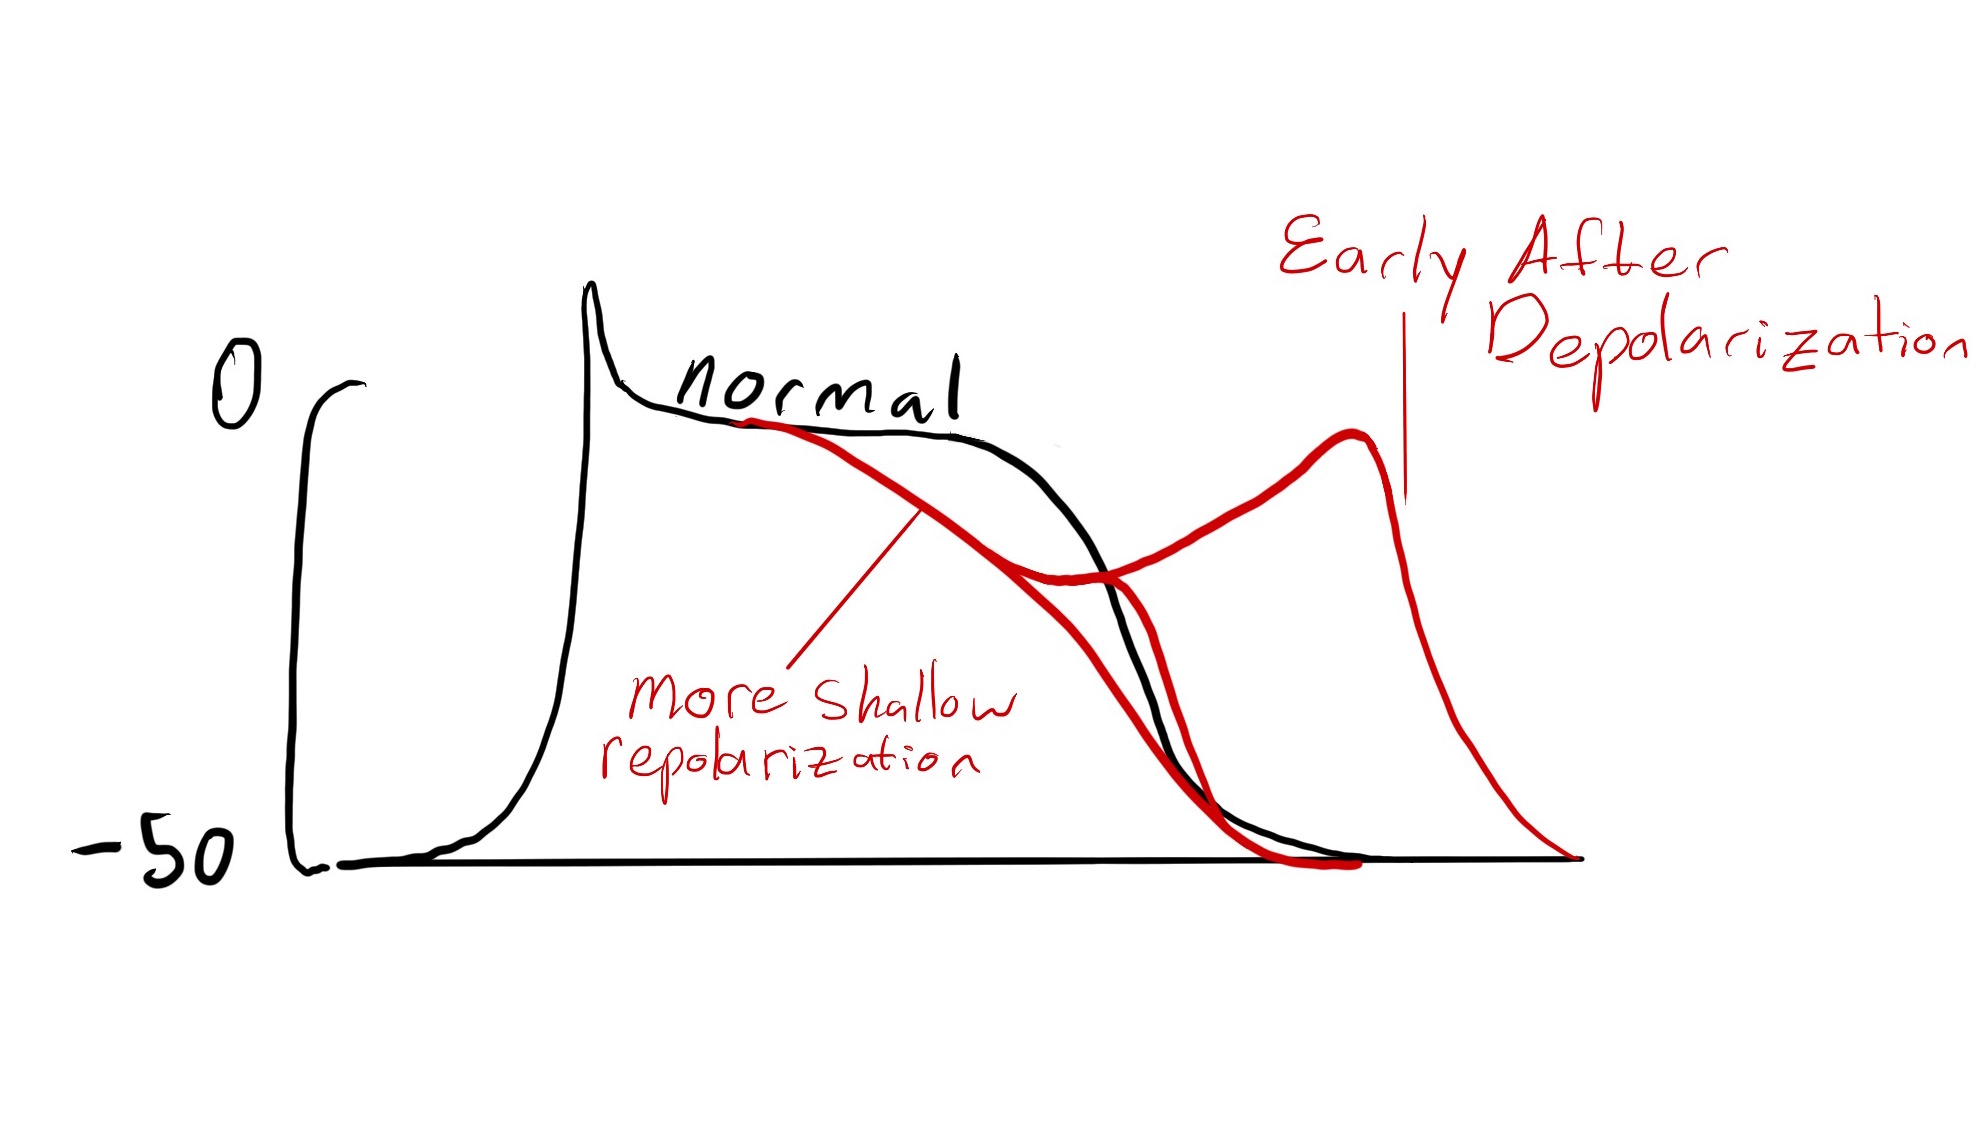 Early After
Depolarization
0
normal
More Shallow
repolarization
-50